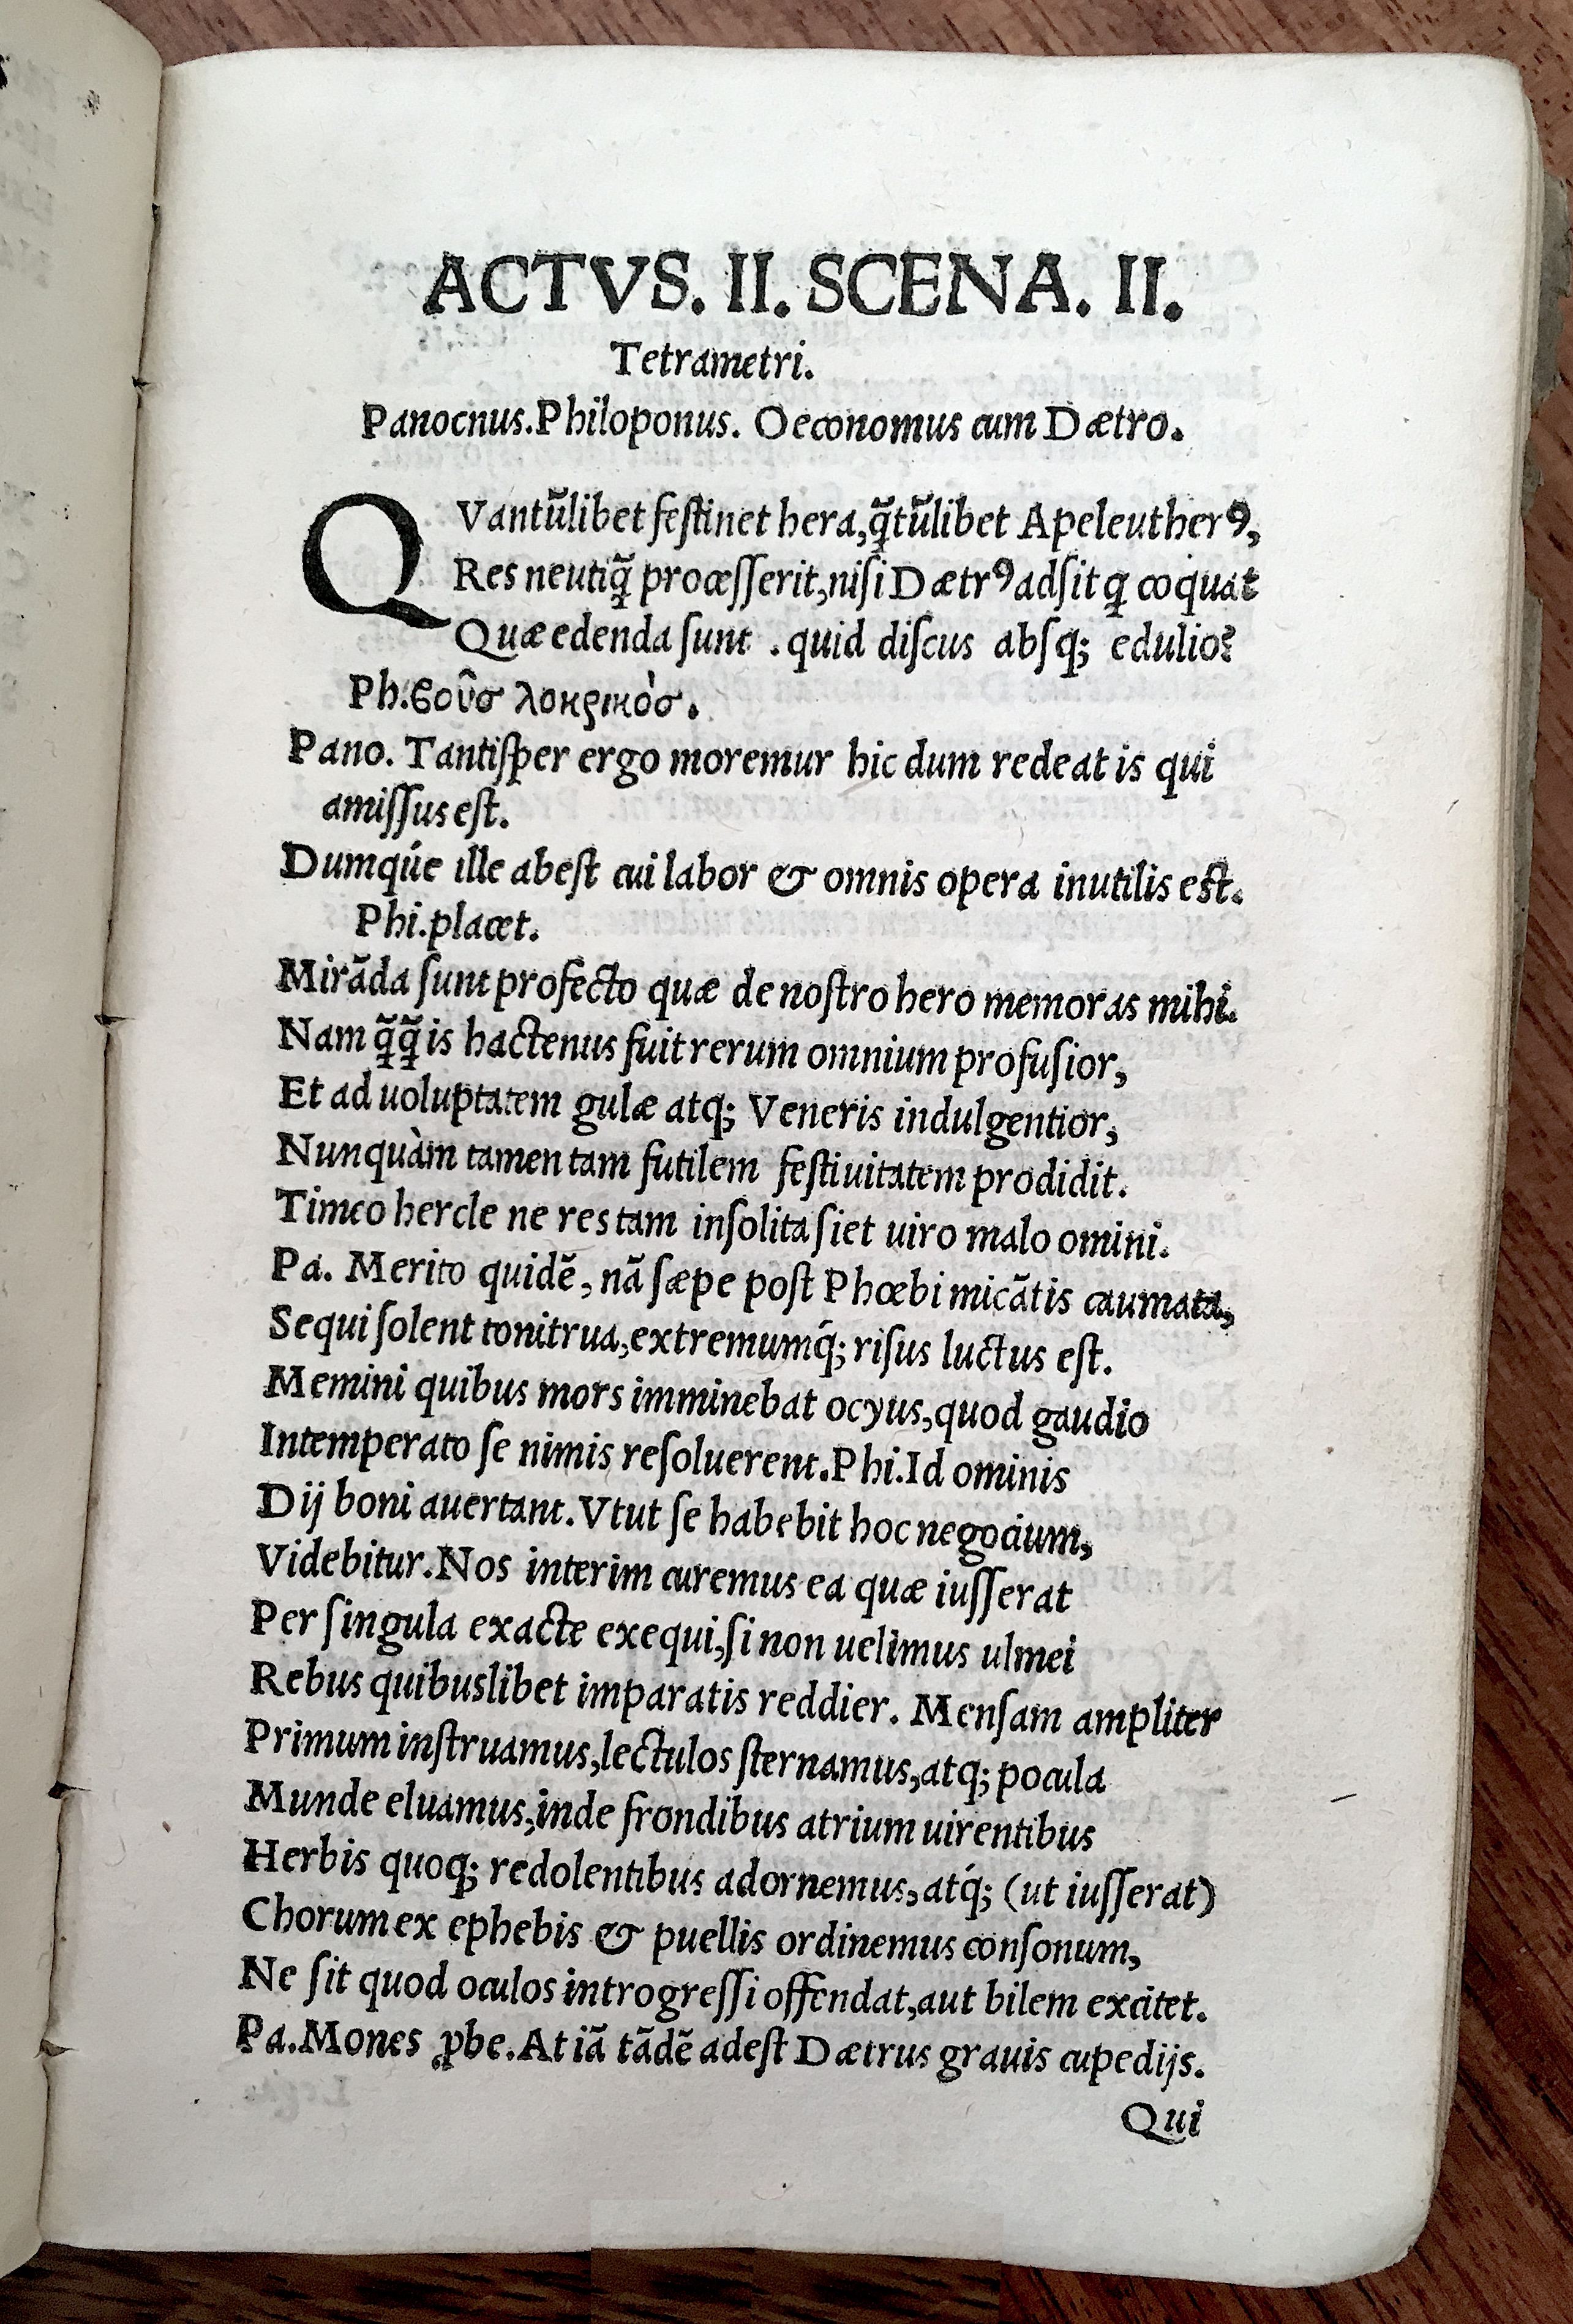 ACTVS. II. SCENA. II.
Tetrametri.
Panocnus. Philoponus. Oeconomus cum Dætro.
QVantũlibet festinet hera, q̃tũlibet Apeleutherꝰ,
Res neutiq̃ processerit, nisi Dætrꝰ adsit q coquat
Quæ edenda sunt. quid discus absq; edulio?
Ph. βοῦσ λοκρικὸσ.
Pano. Tantisper ergo moremur hic dum redeat is qui
amissus est.
Dumqúe ille abest cui labor & omnis opera inutilis est.
Phi. placet.
Mirãda sunt profecto quæ de nostro hero memoras mihi.
Nam q̃q̃ is hactenus fuit rerum omnium profusior,
Et ad uoluptatem gulæ atq; Veneris indulgentior,
Nunquàm tamen tam futilem festiuitatem prodidit.
Timeo hercle ne res tam insolita siet uiro malo omini.
Pa. Merito quidẽ, nã sæpe post Phœbi micãtis caumata,
Sequi solent tonitrua, extremumq́; risus luctus est.
Memini quibus mors imminebat ocyus, quod gaudio
Intemperato se nimis resoluerent. Phi. Id ominis
Dij boni auertant. Vtut se habebit hoc negocium,
Videbitur. Nos interim curemus ea quæ iusserat
Per singula exacte exequi, si non uelimus ulmei
Rebus quibuslibet imparatis reddier. Mensam ampliter
Primum instruamus, lectulos sternamus, atq; pocula
Munde eluamus, inde frondibus atrium uirentibus
Herbis quoq; redolentibus adornemus, atq́; (ut iusserat)
Chorum ex ephebis & puellis ordinemus consonum,
Ne sit quod oculos introgressi offendat, aut bilem excitet.
Pa. Mones ꝓbe. At iã tãdẽ adest Dætrus grauis cupedijs.
Qui